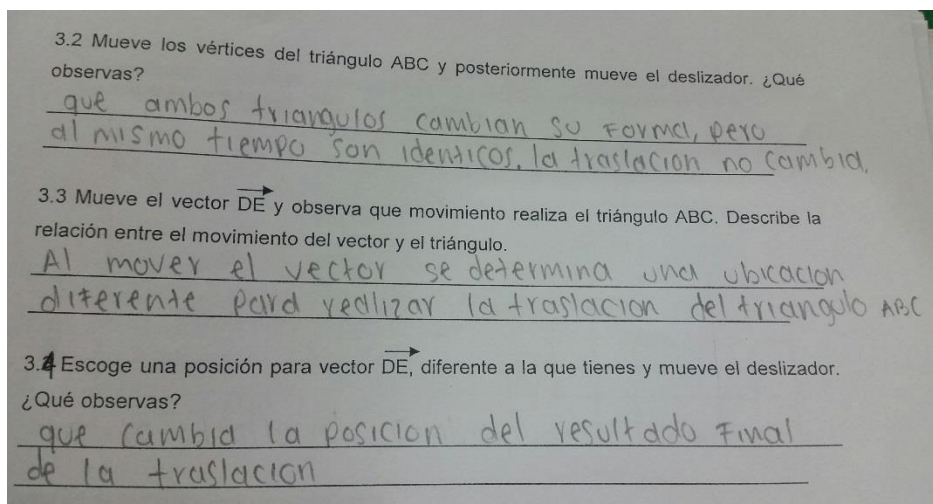 3.2 Mueve los vértices del triángulo ABC y posteriormente mueve el deslizador. ¿Qué
observas?
que ambos triangulos cambian su forma, pero
al mismo tiempo son identicos. la traslacion no cambia.
3.3 Mueve el vector DE y observa que movimiento realiza el triángulo ABC. Describe la
relación entre el movimiento del vector y el triángulo.
Al mover el vector se determina una ubicacion
diferente para realizar la traslacion del triangulo ABC
3.4 Escoge una posición para vector DE, diferente a la que tienes y mueve el deslizador.
¿Qué observas?
que cambia la posicion del resultado Final
de la traslacion